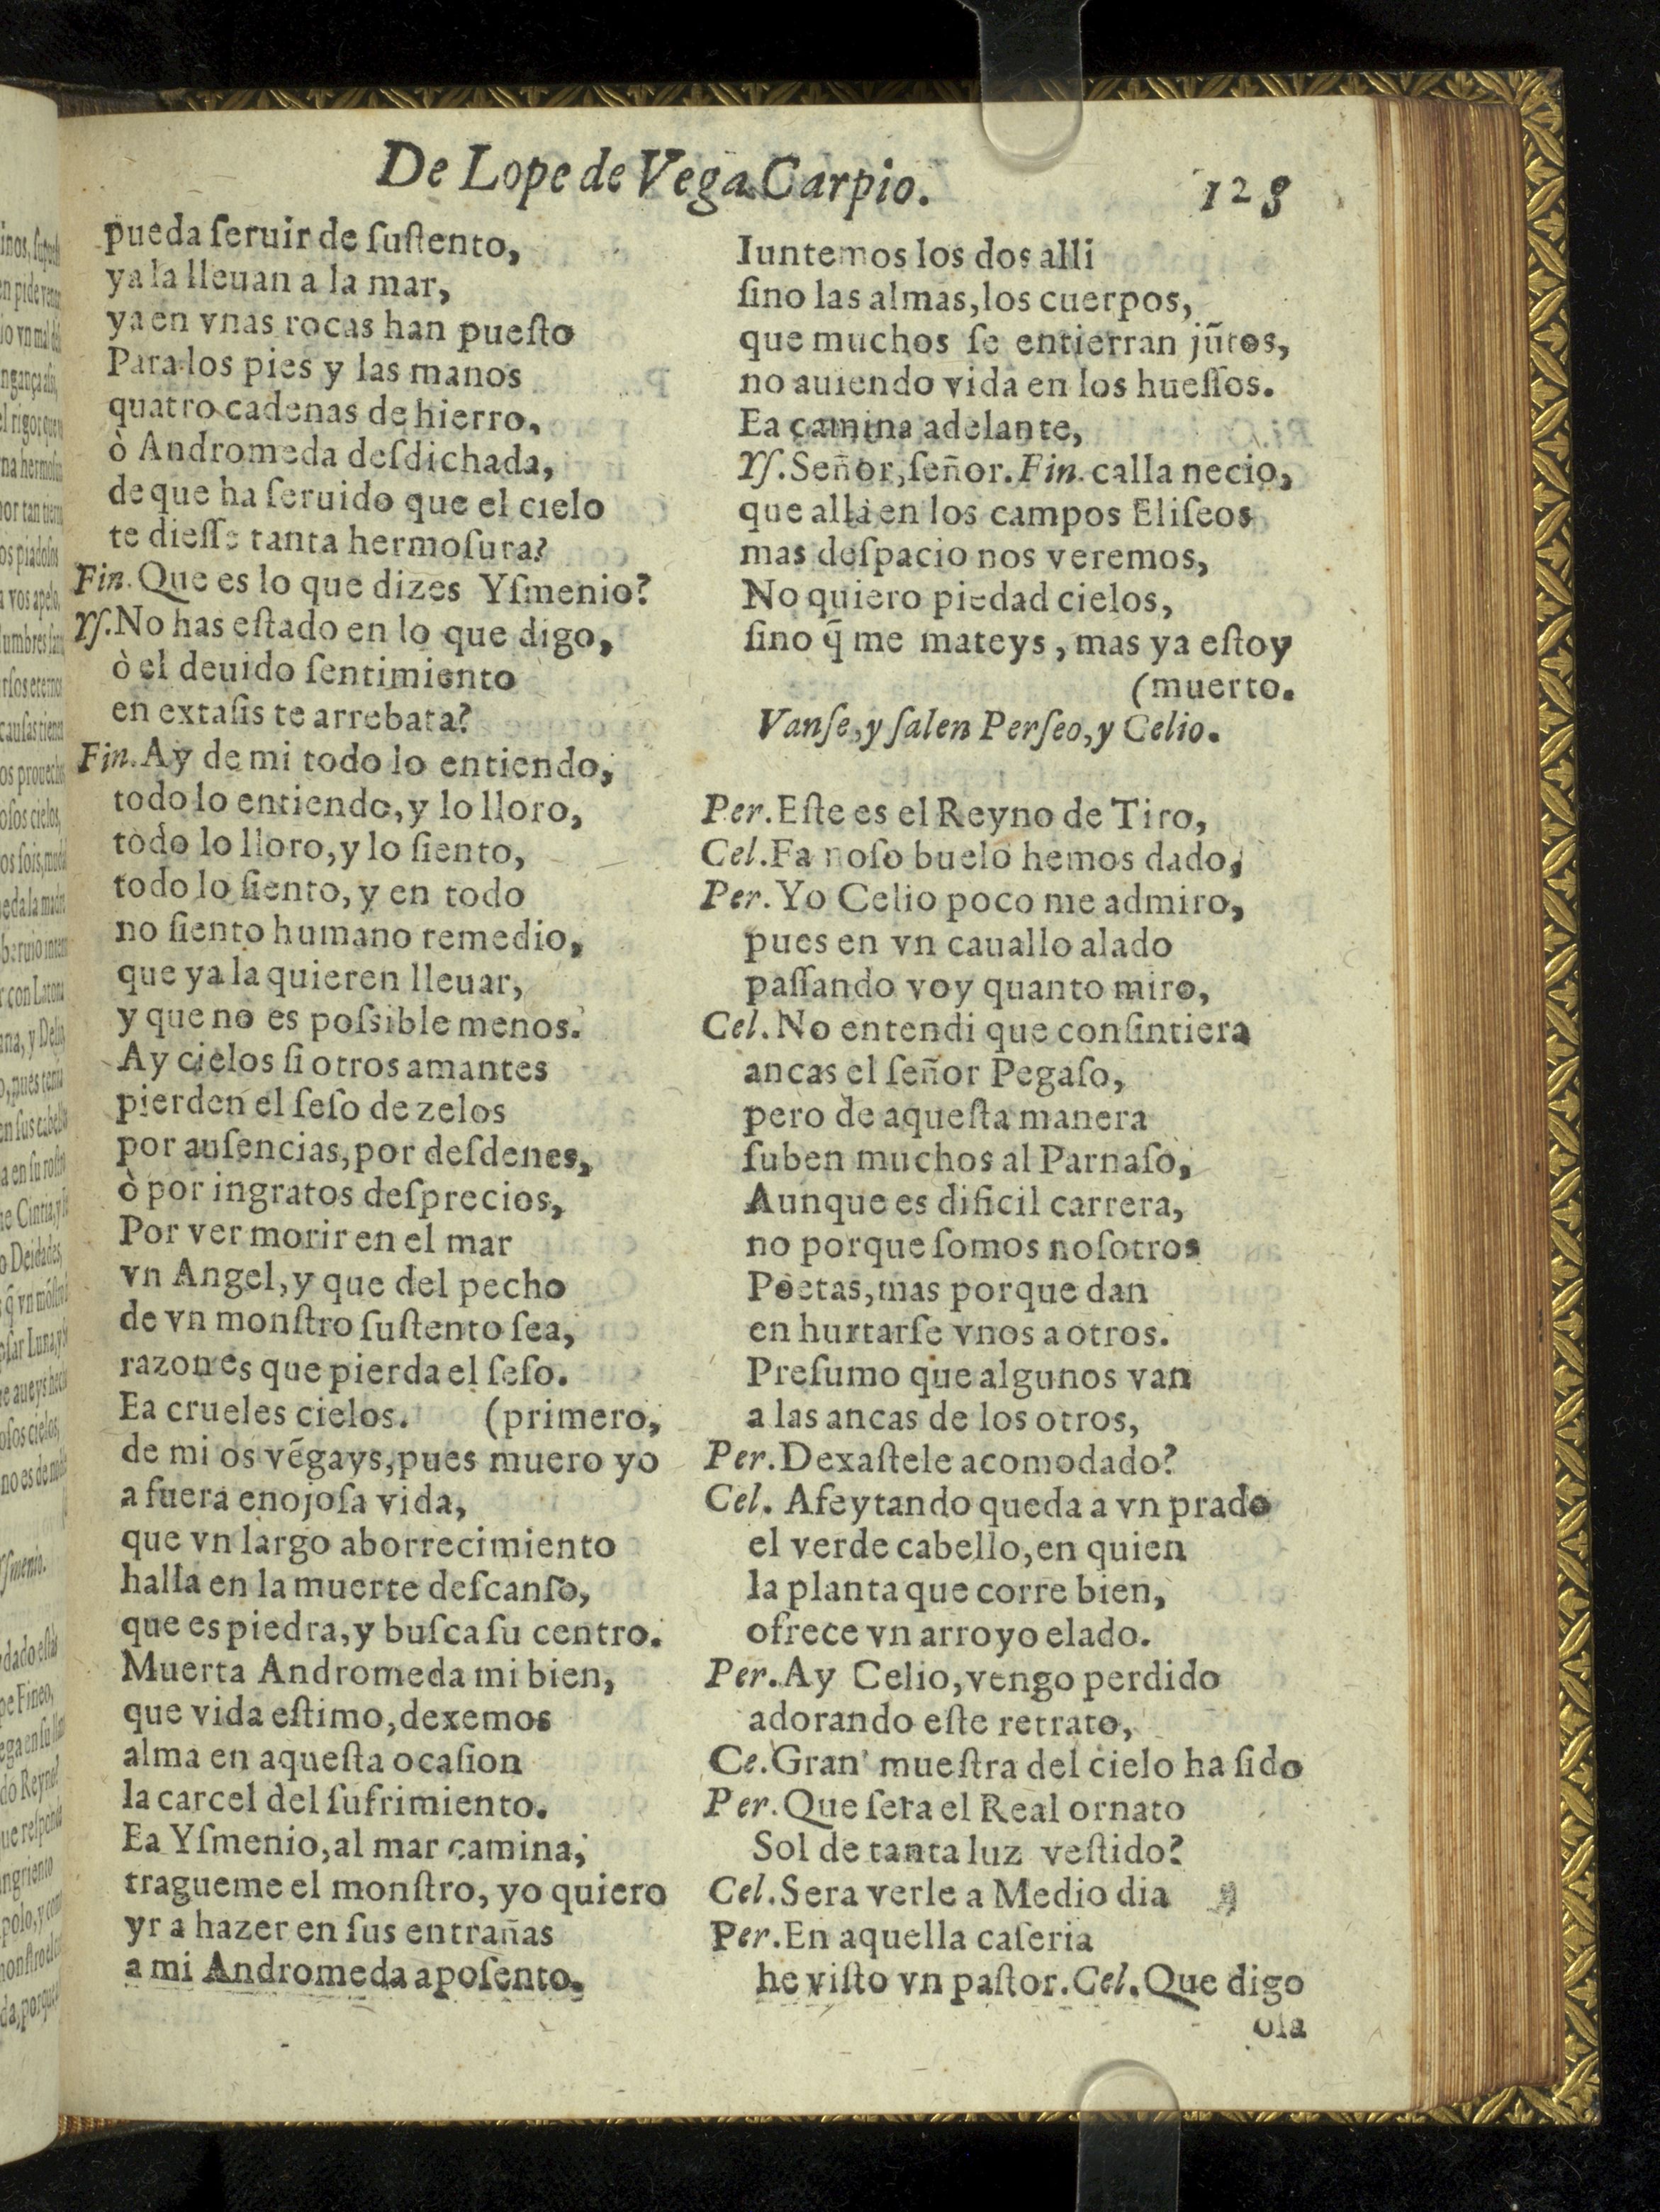 De Lope de Vega Carpio. 123
pueda ſeruir de ſuſtento,
ya la lleuan a la mar,
ya en vnas rocas han pueſto
Para los pies y las manos
quatro cadenas de hierro,
ò Andromeda deſdichada,
de que ha ſeruido que el cielo
te dieſſe tanta hermoſura?
Fin. Que es lo que dizes Yſmenio?
Yſ. No has eſtado en lo que digo,
ò el deuido ſentimiento
en extaſis te arrebata?
Fin. Ay de mi todo lo entiendo,
todo lo entiendo, y lo lloro,
todo lo lloro, y lo ſiento,
todo lo ſiento, y en todo
no ſiento humano remedio,
que ya la quieren lleuar,
y que no es poſsible menos.
Ay cielos ſi otros amantes
pierden el ſeſo de zelos
por auſencias, por deſdenes,
ò por ingratos deſprecios,
Por ver morir en el mar
vn Angel, y que del pecho
de vn monſtro ſuſtento ſea,
razon es que pierda el ſeſo.
Ea crueles cielos. (primero,
de mi os vẽgays, pues muero yo
a fuera enojoſa vida,
que vn largo aborrecimiento
halla en la muerte deſcanſo,
que es piedra, y buſca ſu centro.
Muerta Andromeda mi bien,
que vida eſtimo, dexemos
alma en aqueſta ocaſion
la carcel del ſufrimiento.
Ea Yſmenio, al mar camina,
tragueme el monſtro, yo quiero
yr a hazer en ſus entrañas
a mi Andromeda apoſento.
Iuntemos los dos alli
ſino las almas, los cuerpos,
que muchos ſe entierran jũtos,
no auiendo vida en los hueſſos.
Ea camina adelante,
Yſ. Señor, ſeñor. Fin. calla necio,
que alla en los campos Eliſeos
mas deſpacio nos veremos,
No quiero piedad cielos,
ſino q̃ me mateys, mas ya eſtoy
(muerto.
Vanſe, y ſalen Perſeo, y Celio.
Per. Eſte es el Reyno de Tiro,
Cel. Fa noſo buelo hemos dado,
Per. Yo Celio poco me admiro,
pues en vn cauallo alado
paſſando voy quanto miro,
Cel. No entendi que conſintiera
ancas el ſeñor Pegaſo,
pero de aqueſta manera
ſuben muchos al Parnaſo,
Aunque es dificil carrera,
no porque ſomos noſotros
Poetas, mas porque dan
en hurtarſe vnos a otros.
Preſumo que algunos van
a las ancas de los otros,
Per. Dexaſtele acomodado?
Cel. Afeytando queda a vn prado
el verde cabello, en quien
la planta que corre bien,
ofrece vn arroyo elado.
Per. Ay Celio, vengo perdido
adorando eſte retrato,
Ce. Gran mueſtra del cielo ha ſido
Per. Que ſera el Real ornato
Sol de tanta luz veſtido?
Cel. Sera verle a Medio dia
Per. En aquella caſeria
he viſto vn paſtor. Cel. Que digo
ola